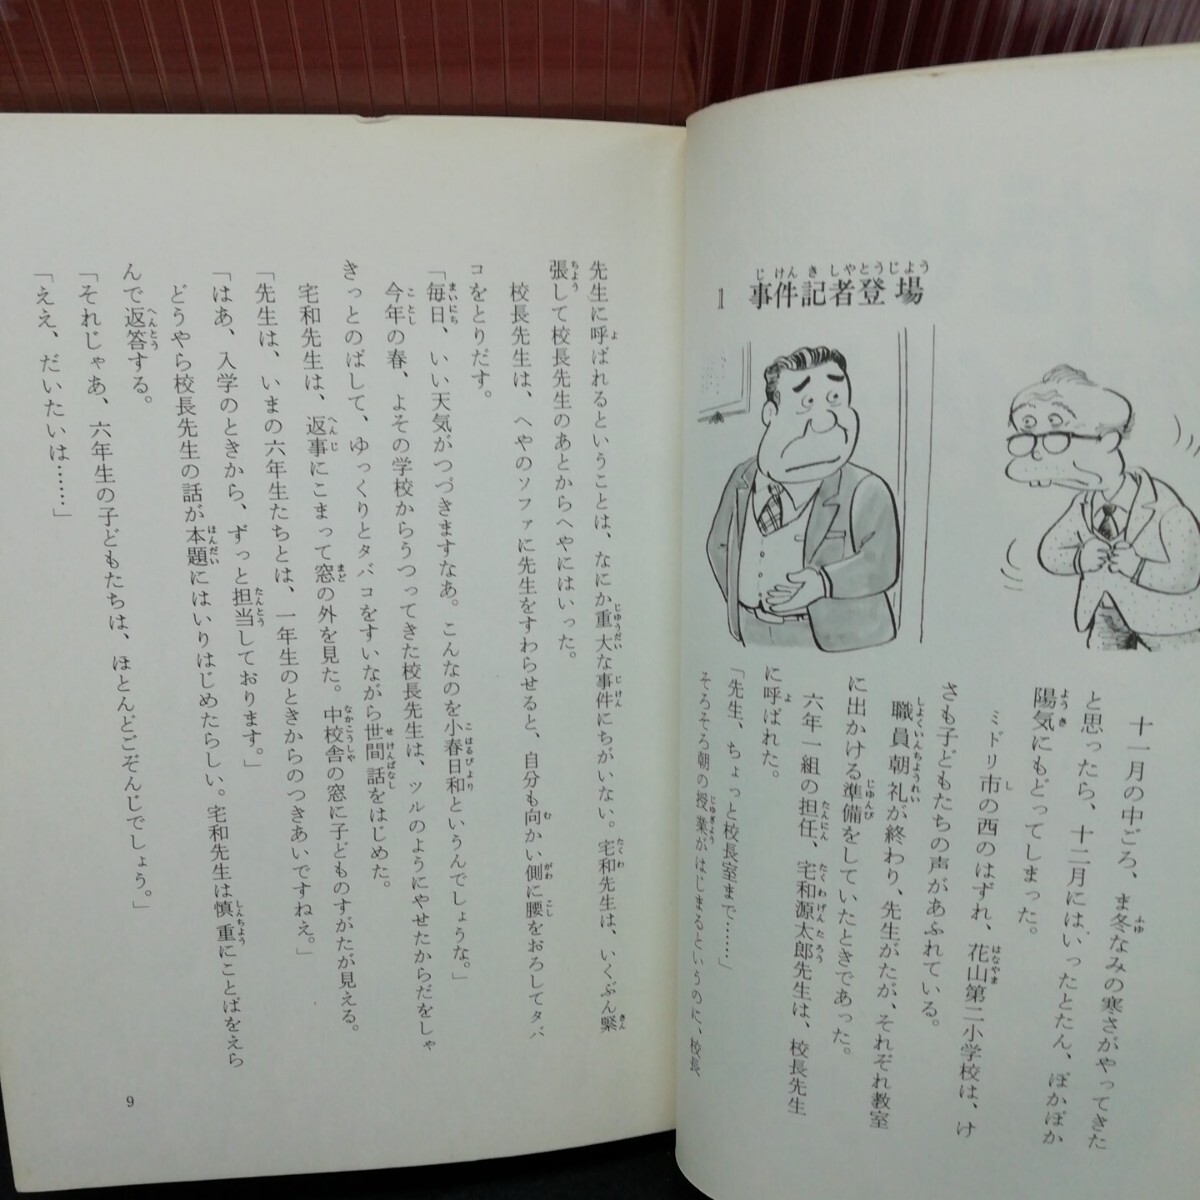 1 事件記者登場
十一月の中ごろ、ま冬なみの寒さがやってきた
と思ったら、十二月にはいったとたん、ぽかぽか
陽気にもどってしまった。
ミドリ市の西のはずれ、花山第二小学校は、け
さも子どもたちの声があふれている。
職員朝礼が終わり、先生がたが、それぞれ教室
に出かける準備をしていたときであった。
六年一組の担任、宅和源太郎先生は、校長先生
に呼ばれた。
「先生、ちょっと校長室まで……」
そろそろ朝の授業がはじまるというのに、校長
先生に呼ばれるということは、なにか重大な事件にちがいない。宅和先生は、いくぶん緊
張して校長先生のあとからへやにはいった。
校長先生は、へやのソファに先生をすわらせると、自分も向かい側に腰をおろしてタバ
コをとりだす。
「毎日、いい天気がつづきますなあ。こんなのを小春日和というんでしょうな。」
今年の春、よその学校からうつってきた校長先生は、ツルのようにやせたからだをしゃ
きっとのばして、ゆっくりとタバコをすいながら世間話をはじめた。
宅和先生は、返事にこまって窓の外を見た。中校舎の窓に子どものすがたが見える。
「先生は、いまの六年生たちとは、一年生のときからのつきあいですねえ。」
「はあ、入学のときから、ずっと担当しております。」
どうやら校長先生の話が本題にはいりはじめたらしい。宅和先生は慎重にことばをえら
んで返答する。
「それじゃあ、六年生の子どもたちは、ほとんどごぞんじでしょう。」
「ええ、だいたいは……」
9